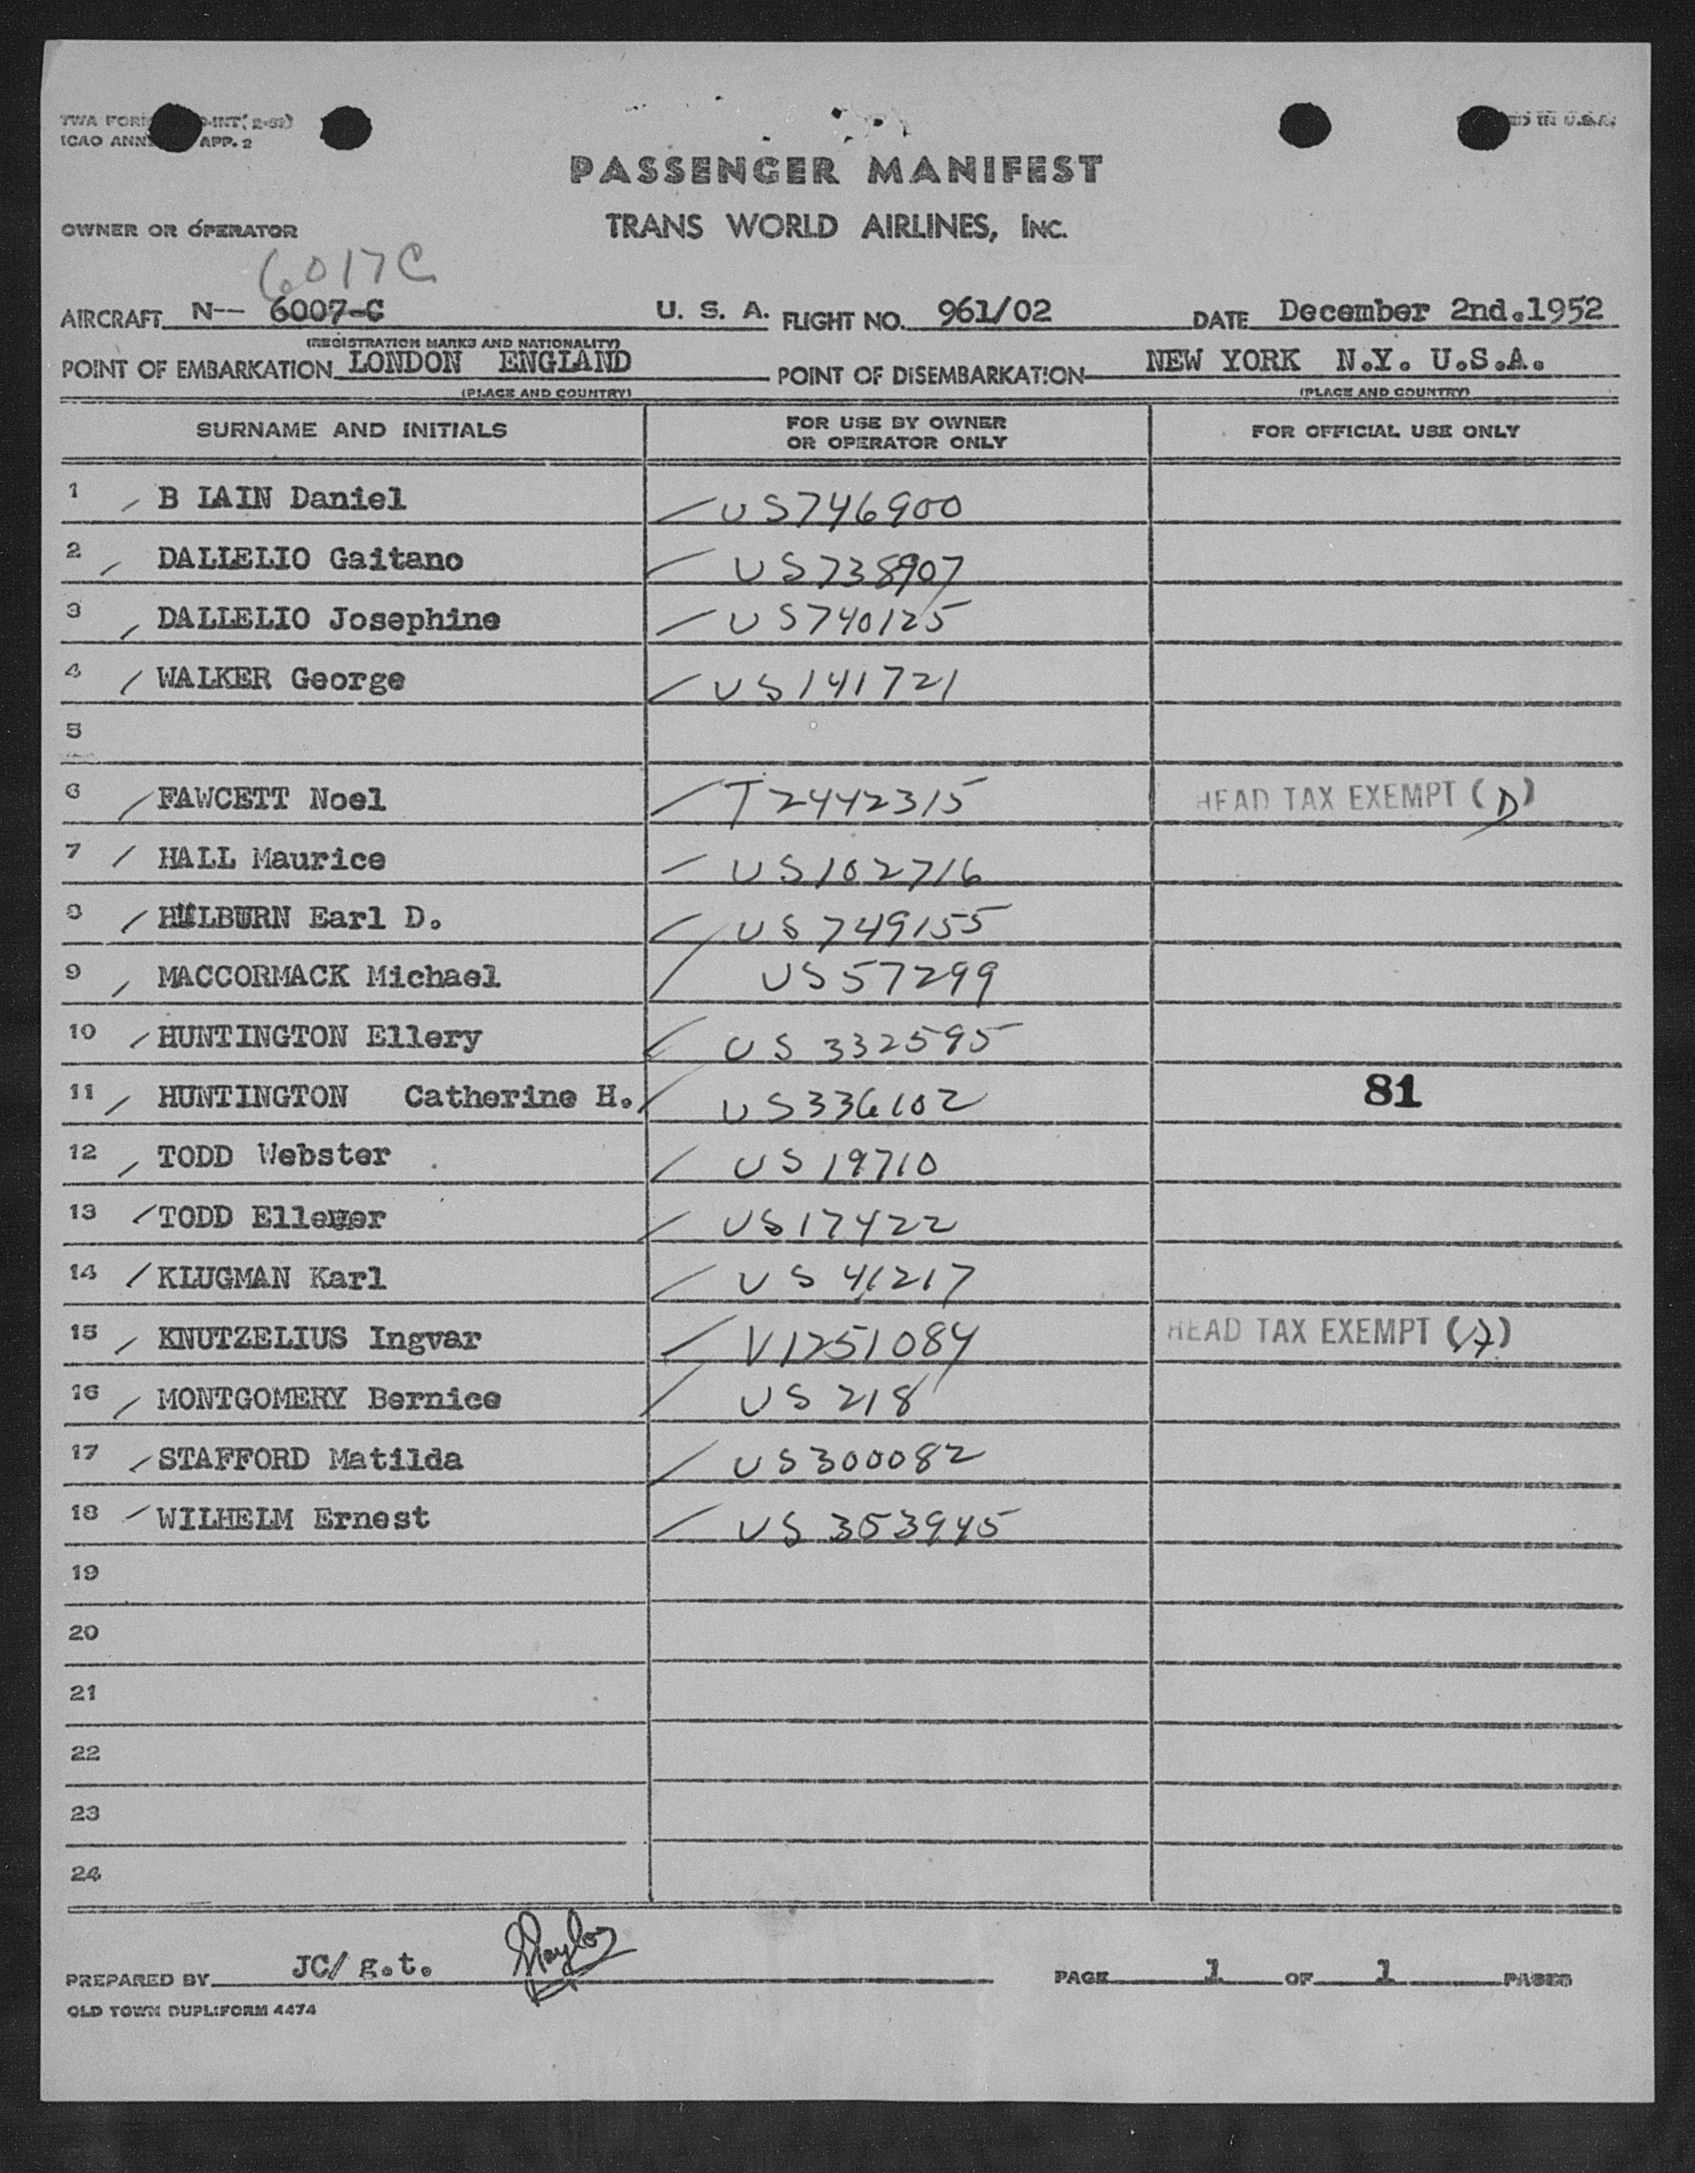 TWA FORM -INT( 2-52)
ICAO ANN APP. 2
IN U.S.A.
PASSENGER MANIFEST
TRANS WORLD AIRLINES, INC.
OWNER OR OPERATOR
6017C
AIRCRAFT N-- 6007-C U. S. A. FLIGHT NO. 961/02 DATE December 2nd.1952
(REGISTRATION MARKS AND NATIONALITY)
POINT OF EMBARKATION LONDON ENGLAND POINT OF DISEMBARKATION NEW YORK N.Y. U.S.A.
(PLACE AND COUNTRY) (PLACE AND COUNTRY)
SURNAME AND INITIALS FOR USE BY OWNER OR OPERATOR ONLY FOR OFFICIAL USE ONLY
1 / B LAIN Daniel / US746900
2 / DALLELIO Gaitano / US738907
3 / DALLELIO Josephine / US740125
4 / WALKER George / US141721
5
6 / FAWCETT Noel / T2442315 HEAD TAX EXEMPT (D)
7 / HALL Maurice / US102716
8 / HILBURN Earl D. / US749155
9 / MACCORMACK Michael / US57299
10 / HUNTINGTON Ellery / US 332595
11 / HUNTINGTON Catherine H. / US336102 81
12 / TODD Webster / US 19710
13 / TODD Ellener / US17422
14 / KLUGMAN Karl / US 41217
15 / KNUTZELIUS Ingvar / V1251084 HEAD TAX EXEMPT
16 / MONTGOMERY Bernice / US 218
17 / STAFFORD Matilda / US300082
18 / WILHELM Ernest / US 353945
19
20
21
22
23
24
PREPARED BY JC/ g.t. PAGE 1 OF 1 PAGES
OLD TOWN DUPLIFORM 4474